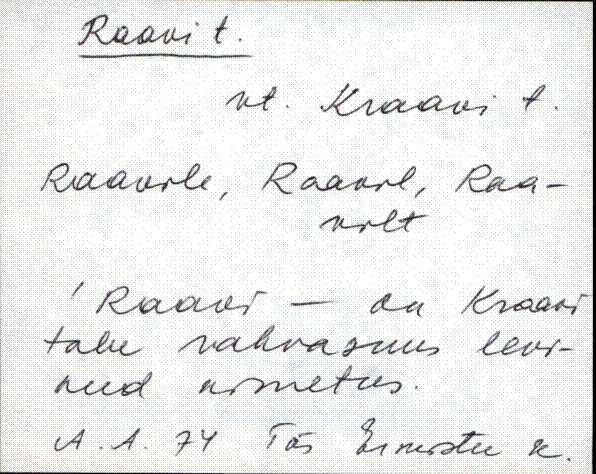 Raavi t.
vt. Kraavi t.
Raavile, Raavil, Raa-
vilt
'Raavi – on Kraavi
talu rahvasuus levi-
nud nimetus.
A. A. 74 Tõs Ermistu k.